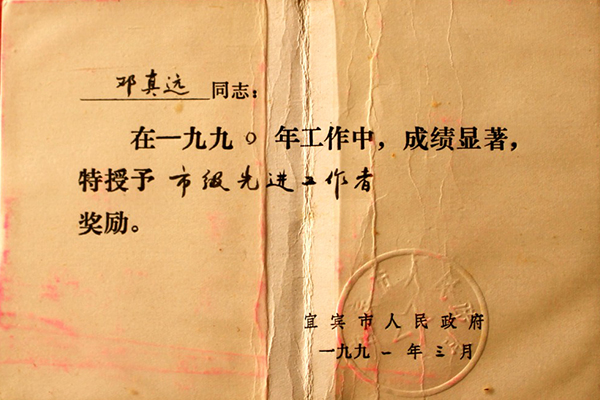 邓真远同志：
在一九九〇年工作中，成绩显著，
特授予市级先进工作者
奖励。
宜宾市人民政府
一九九一年三月